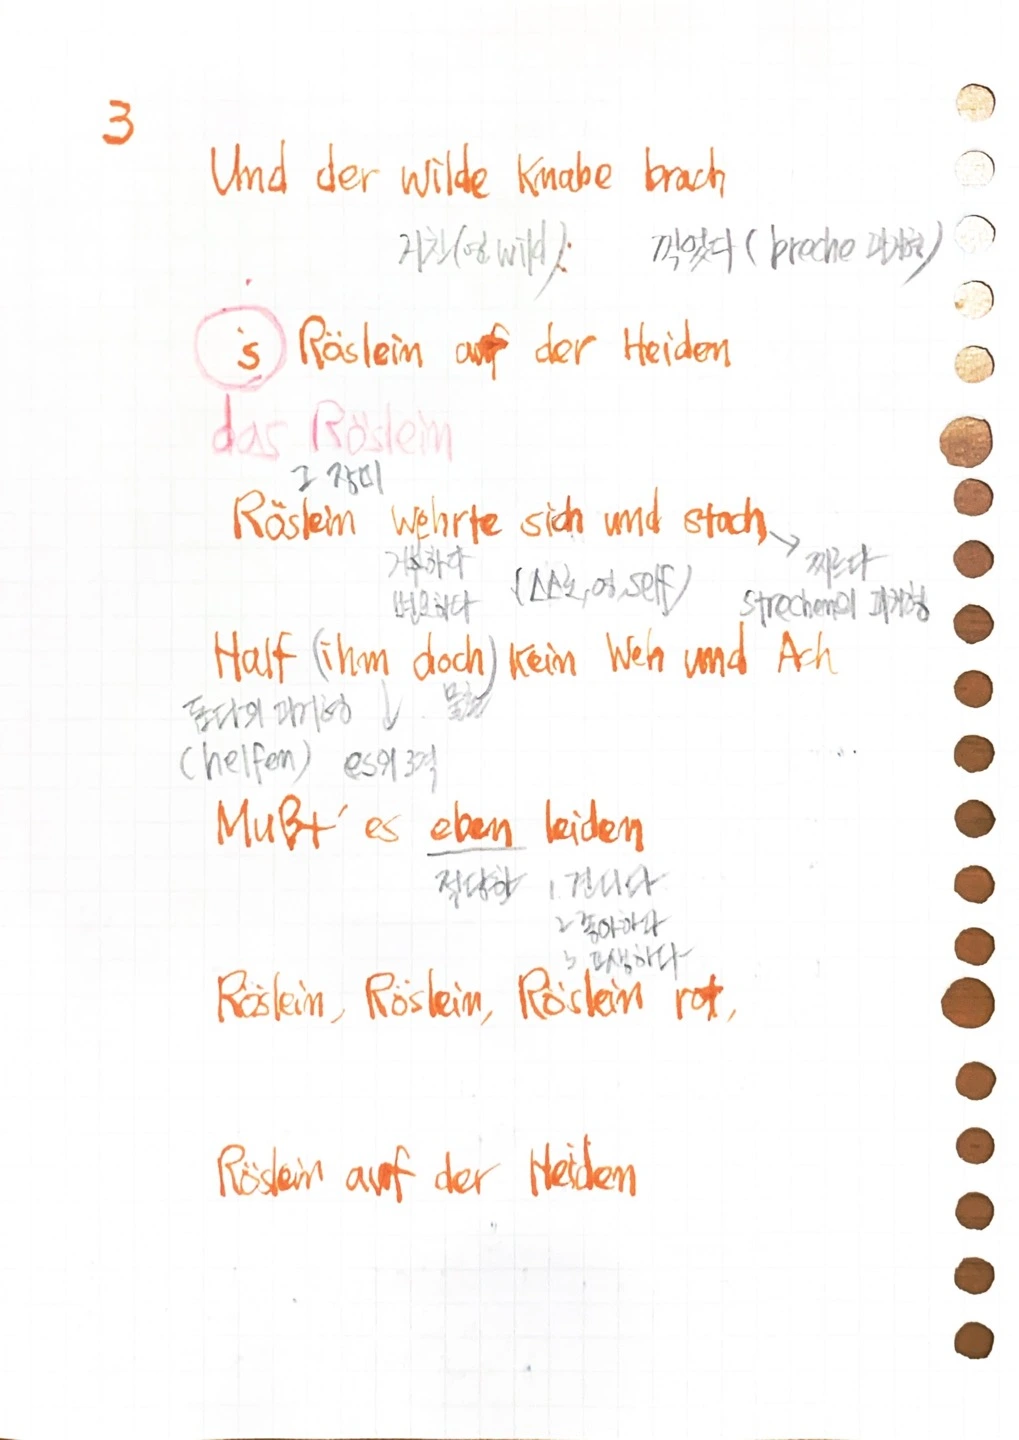 3
Und der wilde Knabe brach
거친(영 wild): 꺽었다 (breche 과거형)
's Röslein auf der Heiden
das Röslein
그 장미
Röslein wehrte sich und stach,
거부하다 (스스로, 영, self) → 찌르다
strechen의 과거형
Half (ihm doch) kein Weh und Ach
돕다의 과거형 ↓
(helfen) es의 3격
Mußt' es eben leiden
적당한 1. 견디다
2 좋아하다
3
Röslein, Röslein, Röslein rot,
Röslein auf der Heiden